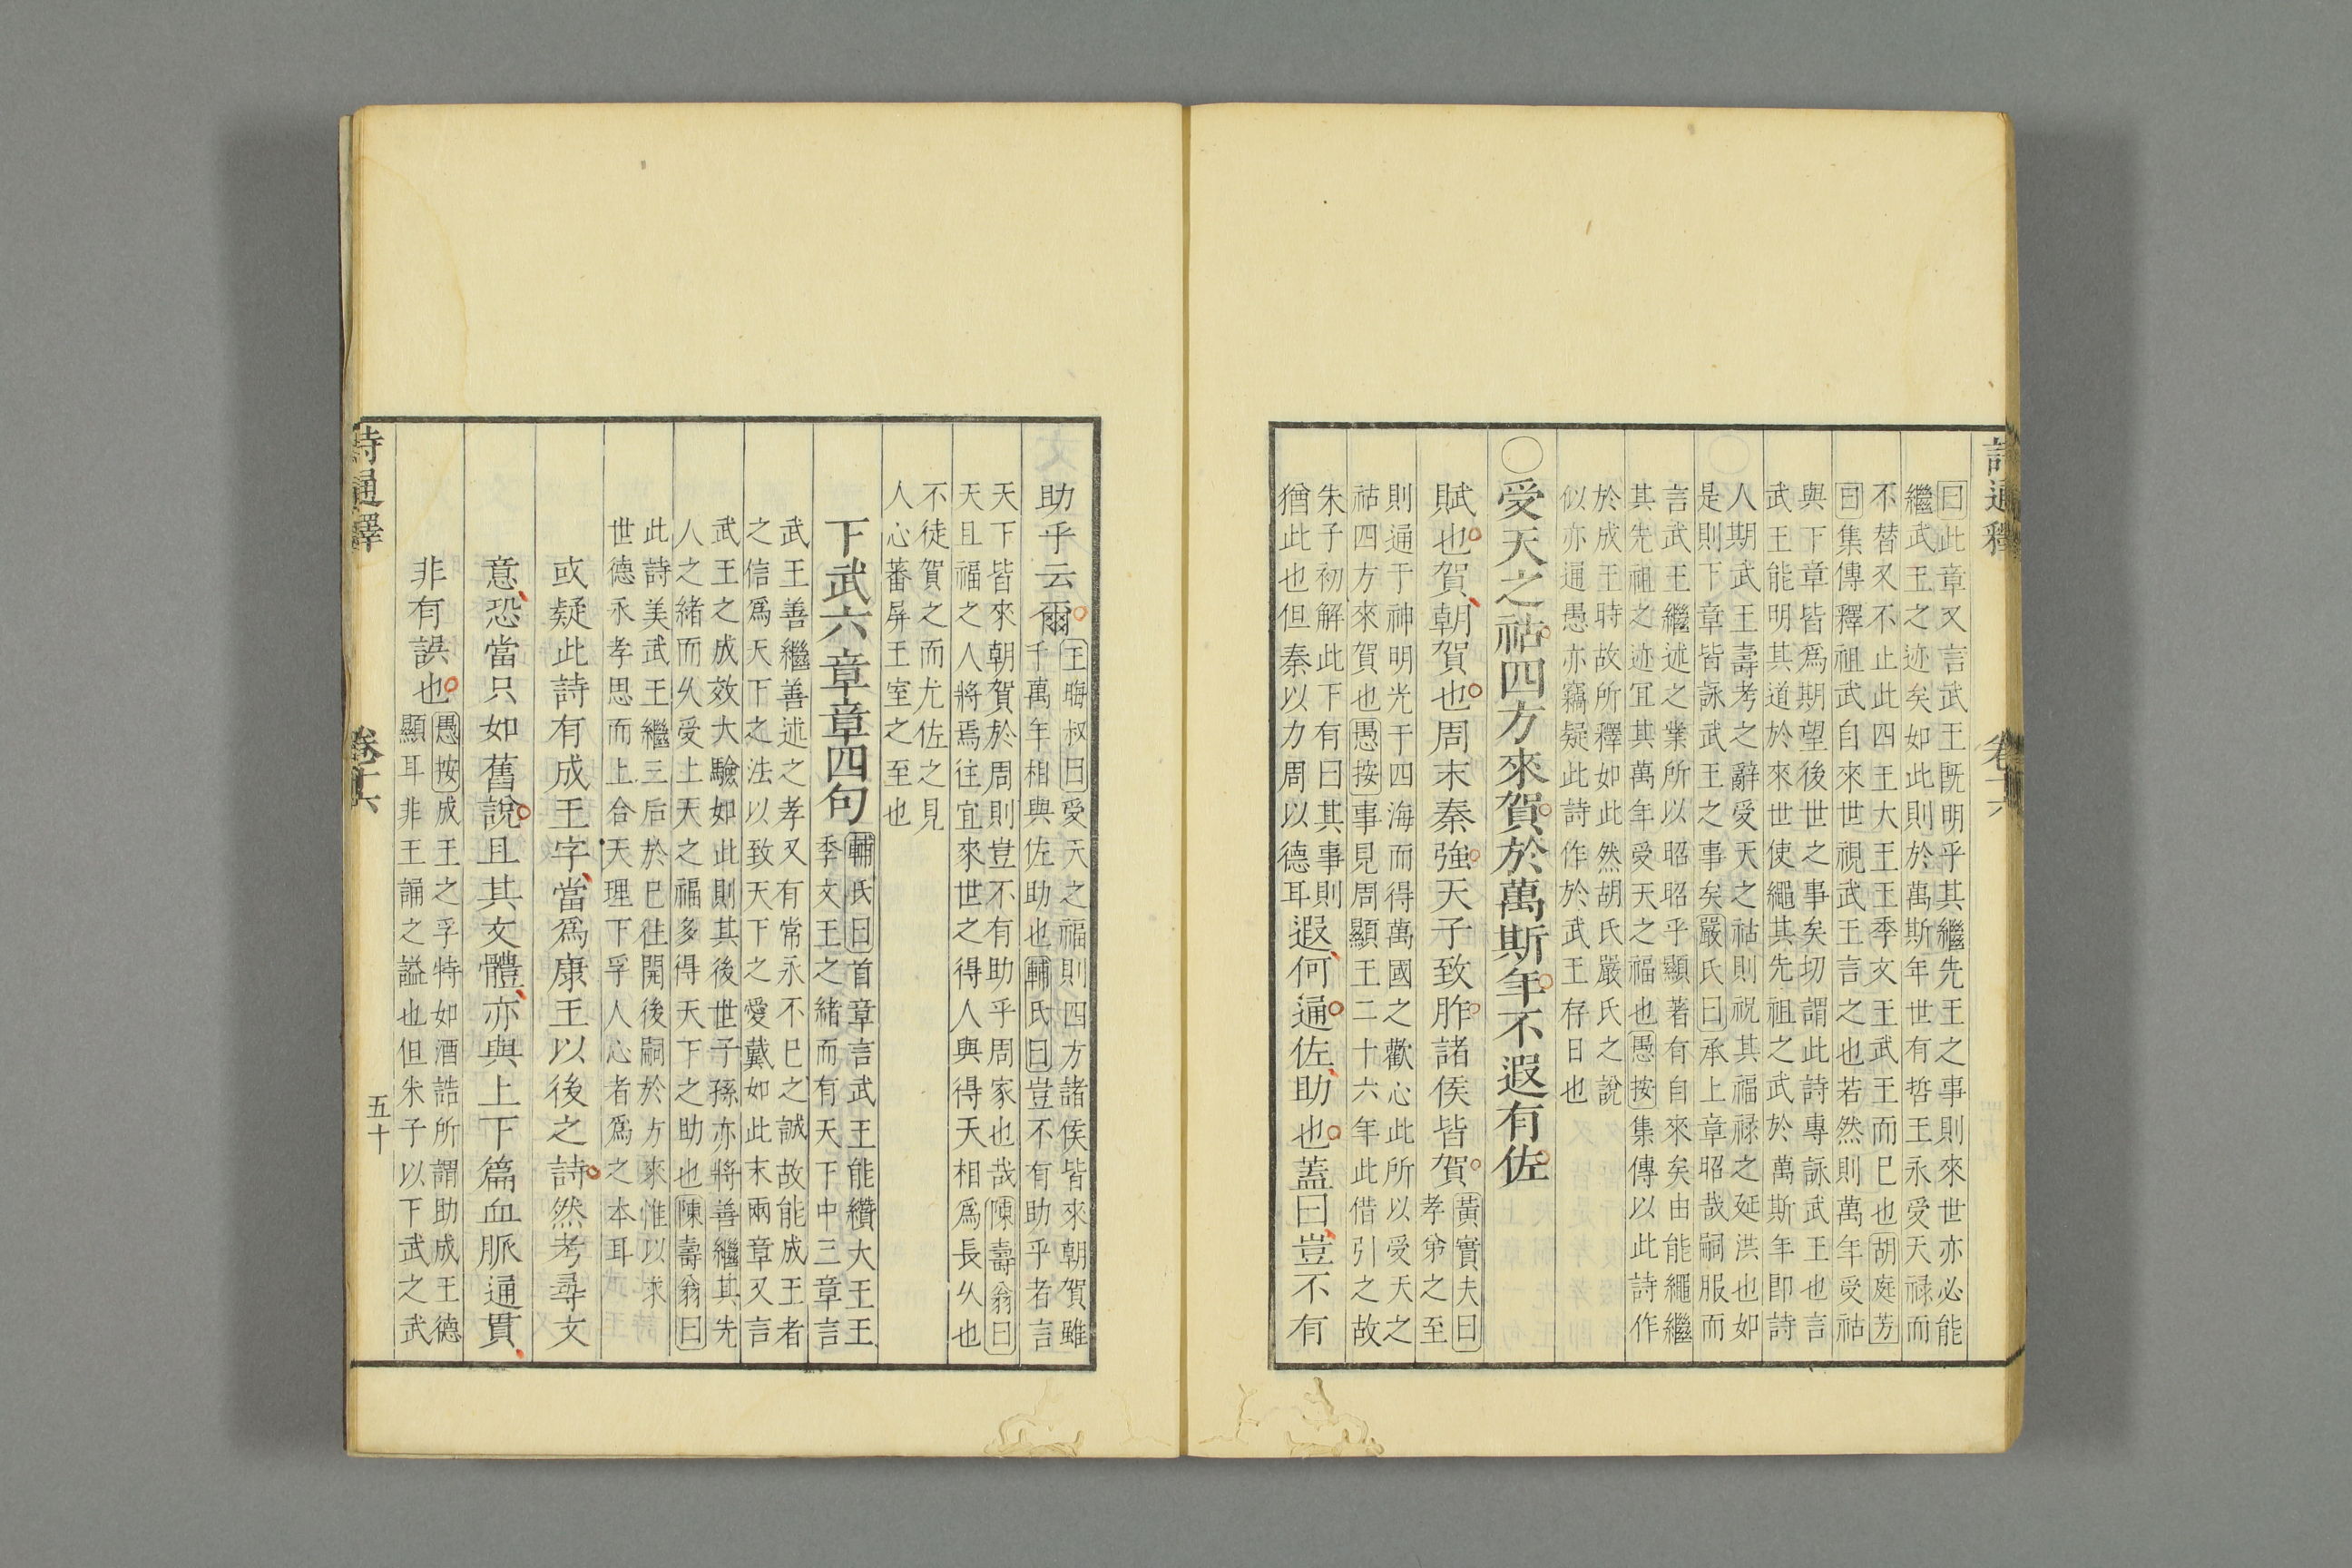 詩通釋 卷十六
曰此章又言武王既明乎其繼先王之事則來世亦必能
繼武王之迹矣如此則於萬斯年世有哲王永受天禄而
不替又不止此四王大王王季文王武王而巳也胡庭芳
曰集傳釋祖武自來世視武王言之也若然則萬年受祜
與下章皆爲期望後世之事矣切謂此詩專詠武王也言
武王能明其道於來世使繩其先祖之武於萬斯年即詩
人期武王壽考之辭受天之祜則祝其福禄之延洪也如
是則下章皆詠武王之事矣嚴氏曰承上章昭哉嗣服而
言武王繼述之業所以昭昭乎顯著有自來矣由能繩繼
其先祖之迹宜其萬年受天之福也愚按集傳以此詩作
於成王時故所釋如此然胡氏嚴氏之說
似亦通愚亦竊疑此詩作於武王存日也
〇受天之祜四方來賀於萬斯年不遐有佐
賦也賀朝賀也周末秦強天子致胙諸侯皆賀
黃實夫曰
孝弟之至
則通于神明光于四海而得萬國之歡心此所以受天之
祜四方來賀也愚按事見周顯王二十六年此借引之故
朱子初解此下有曰其事則
猶此也但秦以力周以德耳
遐何通佐助也蓋曰豈不有
助乎云爾
王晦叔曰受天之福則四方諸侯皆來朝賀雖
千萬年相與佐助也輔氏曰豈不有助乎者言
天下皆來朝賀於周則豈不有助乎周家也哉陳壽翁曰
天且福之人將焉往宜來世之得人與得天相爲長久也
不徒賀之而尤佐之見
人心蕃屏王室之至也
下武六章章四句
輔氏曰首章言武王能纘大王王
季文王之緒而有天下中三章言
武王善繼善述之孝又有常永不巳之誠故能成王者
之信爲天下之法以致天下之愛戴如此末兩章又言
武王之成效大驗如此則其後世子孫亦將善繼其先
人之緒而久受上天之福多得天下之助也陳壽翁曰
此詩美武王繼三后於巳往開後嗣於方來惟以求
世德永孝思而上合天理下孚人心者爲之本耳
或疑此詩有成王字當爲康王以後之詩然考尋文
意恐當只如舊說且其文體亦與上下篇血脈通貫
非有誤也
愚按成王之孚特如酒誥所謂助成王德
顯耳非王誦之謚也但朱子以下武之武
詩通釋 卷十六 五十